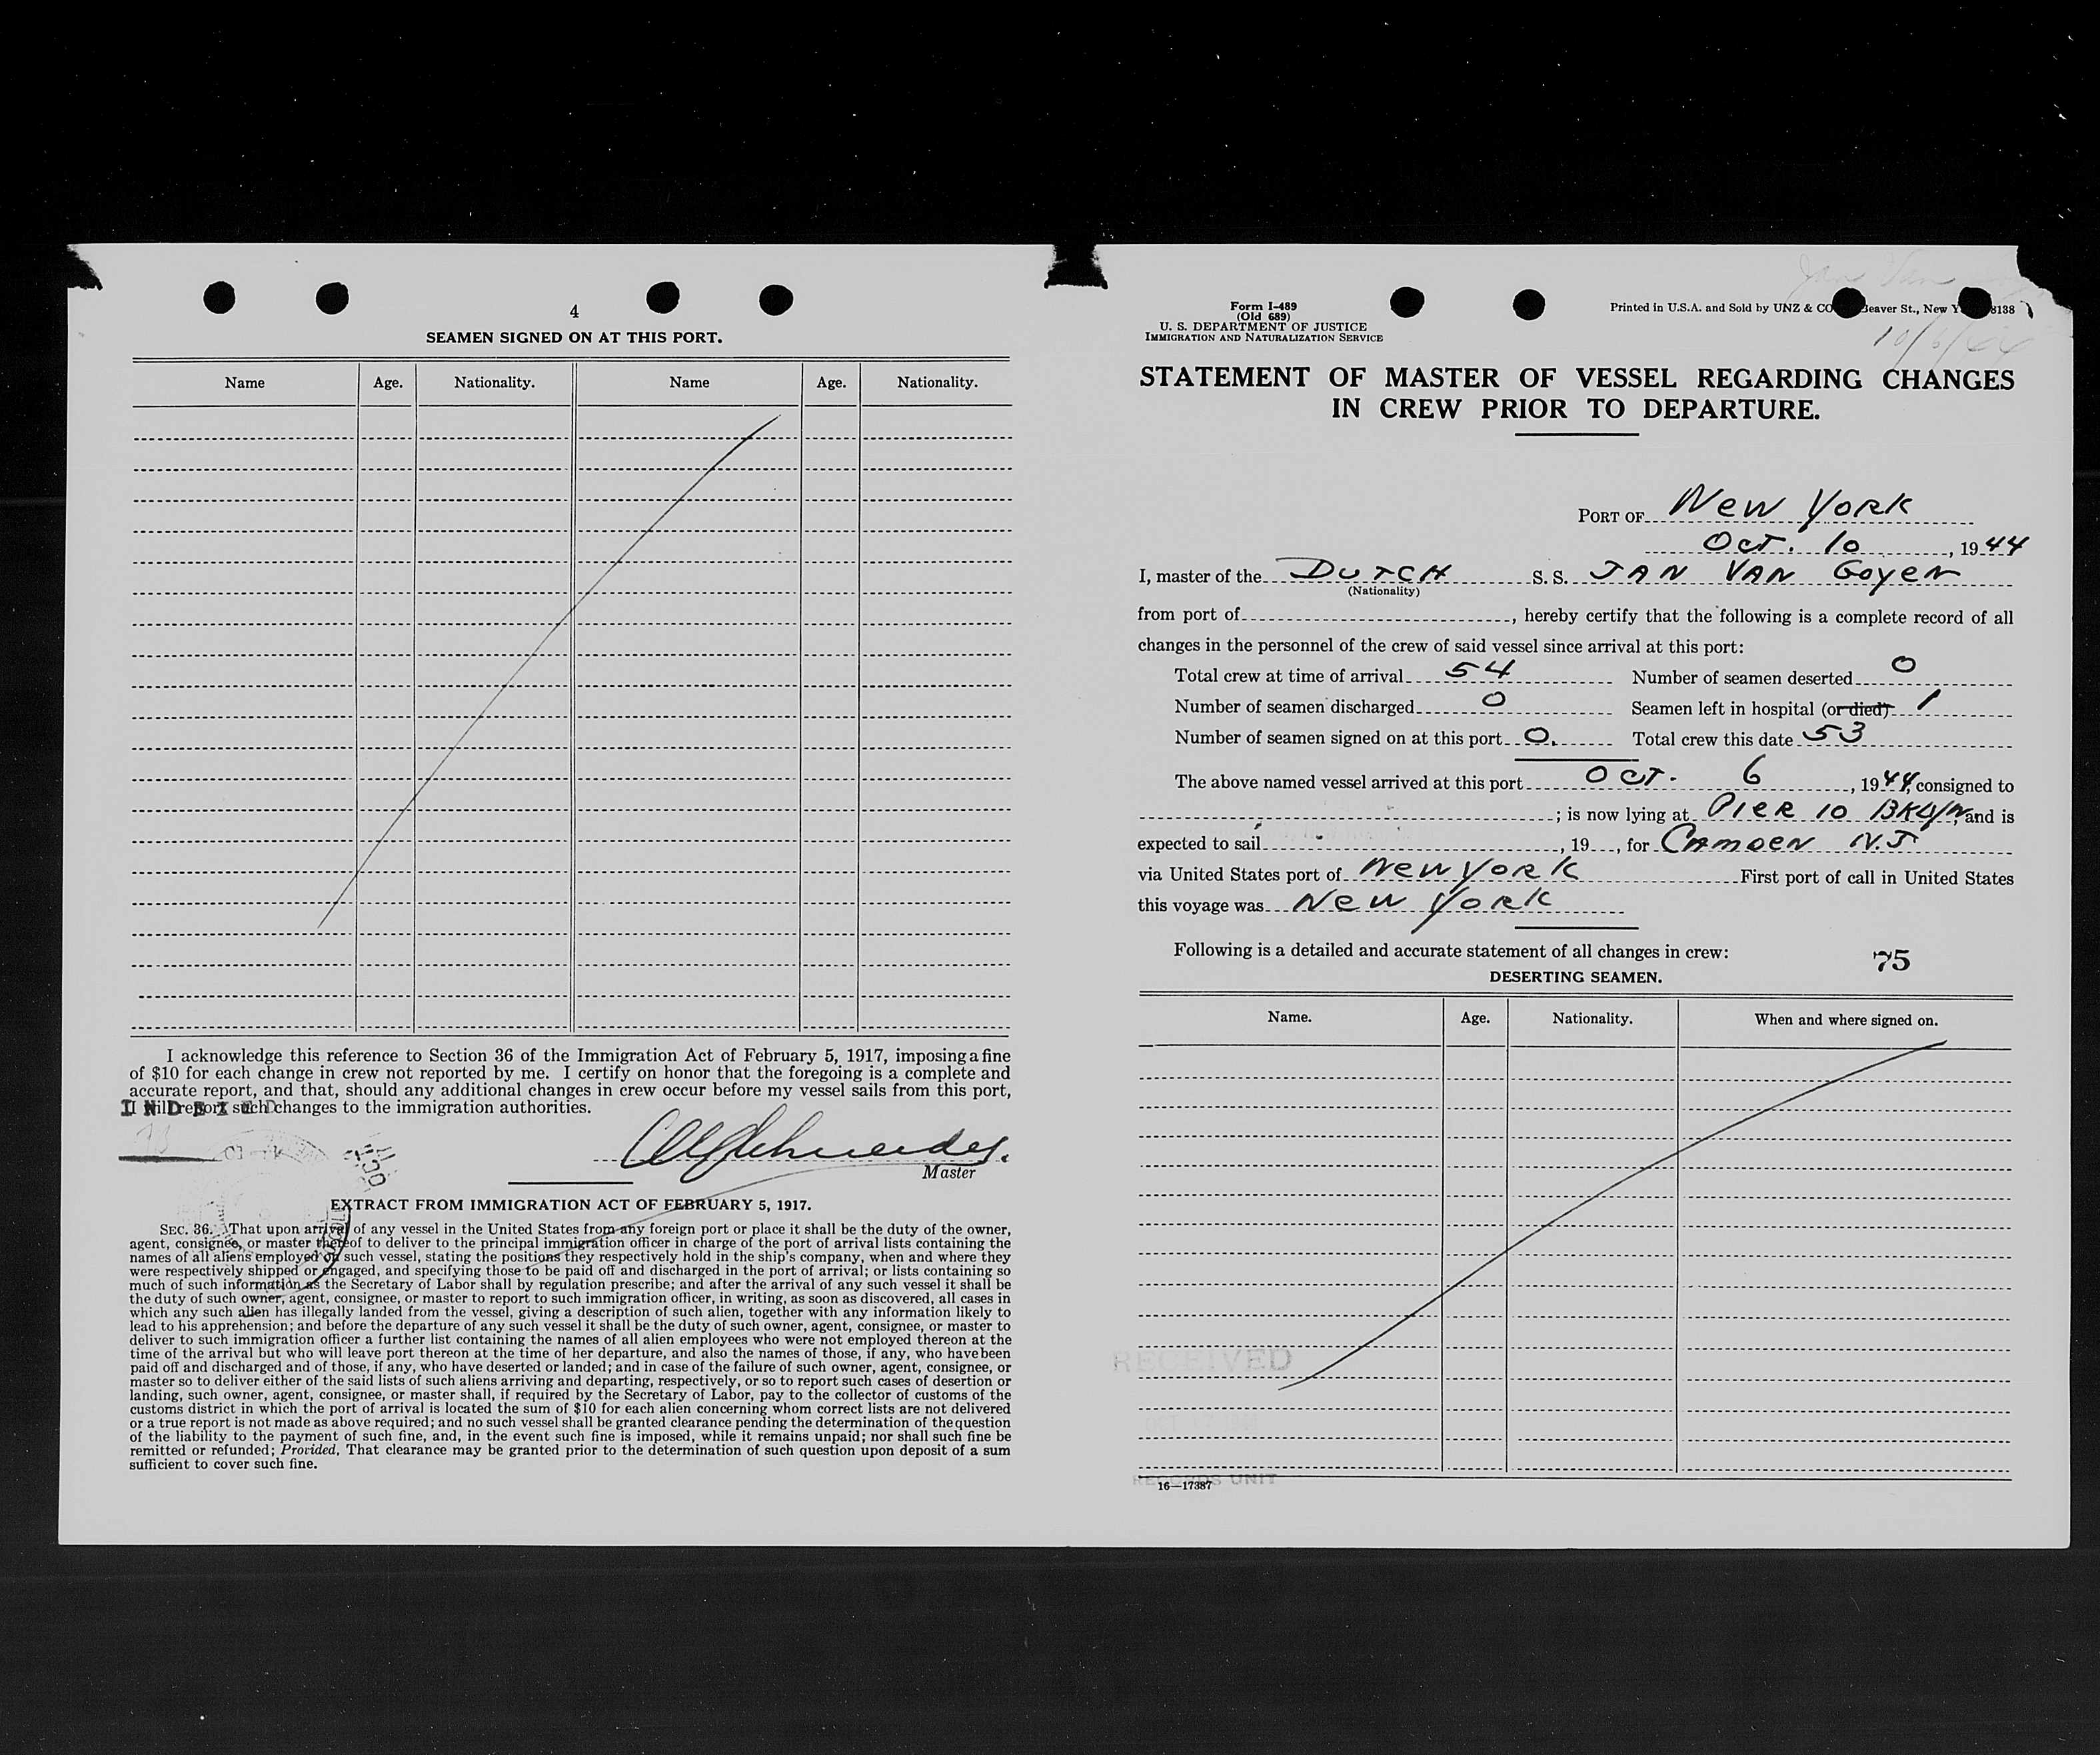 4
SEAMEN SIGNED ON AT THIS PORT.
Name Age. Nationality. Name Age. Nationality.
I acknowledge this reference to Section 36 of the Immigration Act of February 5, 1917, imposing a fine
of $10 for each change in crew not reported by me. I certify on honor that the foregoing is a complete and
accurate report, and that, should any additional changes in crew occur before my vessel sails from this port,
I will report such changes to the immigration authorities.
INDEXED
Master
EXTRACT FROM IMMIGRATION ACT OF FEBRUARY 5, 1917.
SEC. 36. That upon arrival of any vessel in the United States from any foreign port or place it shall be the duty of the owner,
agent, consignee, or master thereof to deliver to the principal immigration officer in charge of the port of arrival lists containing the
names of all aliens employed on such vessel, stating the positions they respectively hold in the ship's company, when and where they
were respectively shipped or engaged, and specifying those to be paid off and discharged in the port of arrival; or lists containing so
much of such information as the Secretary of Labor shall by regulation prescribe; and after the arrival of any such vessel it shall be
the duty of such owner, agent, consignee, or master to report to such immigration officer, in writing, as soon as discovered, all cases in
which any such alien has illegally landed from the vessel, giving a description of such alien, together with any information likely to
lead to his apprehension; and before the departure of any such vessel it shall be the duty of such owner, agent, consignee, or master to
deliver to such immigration officer a further list containing the names of all alien employees who were not employed thereon at the
time of the arrival but who will leave port thereon at the time of her departure, and also the names of those, if any, who have been
paid off and discharged and of those, if any, who have deserted or landed; and in case of the failure of such owner, agent, consignee, or
master so to deliver either of the said lists of such aliens arriving and departing, respectively, or so to report such cases of desertion or
landing, such owner, agent, consignee, or master shall, if required by the Secretary of Labor, pay to the collector of customs of the
customs district in which the port of arrival is located the sum of $10 for each alien concerning whom correct lists are not delivered
or a true report is not made as above required; and no such vessel shall be granted clearance pending the determination of the question
of the liability to the payment of such fine, and, in the event such fine is imposed, while it remains unpaid; nor shall such fine be
remitted or refunded; Provided, That clearance may be granted prior to the determination of such question upon deposit of a sum
sufficient to cover such fine.
Form I-489
(Old 689)
U. S. DEPARTMENT OF JUSTICE
IMMIGRATION AND NATURALIZATION SERVICE
Jan Van
Printed in U.S.A. and Sold by UNZ & CO Beaver St., New Y 8138
10/6/44
STATEMENT OF MASTER OF VESSEL REGARDING CHANGES
IN CREW PRIOR TO DEPARTURE.
PORT OF New York
Oct. 10, 1944
I, master of the DUTCH S. S. JAN VAN Goyen
(Nationality)
from port of , hereby certify that the following is a complete record of all
changes in the personnel of the crew of said vessel since arrival at this port:
Total crew at time of arrival 54 Number of seamen deserted 0
Number of seamen discharged 0 Seamen left in hospital (or died) 1
Number of seamen signed on at this port 0. Total crew this date 53
The above named vessel arrived at this port OCT. 6, 1944, consigned to
; is now lying at Pier 10 BKLYN, and is
expected to sail , 19 , for Camden N.J
via United States port of New York First port of call in United States
this voyage was New York
Following is a detailed and accurate statement of all changes in crew:
75
DESERTING SEAMEN.
Name. Age. Nationality. When and where signed on.
RECEIVED
OCT 17
RECORDS UNIT
16—17387